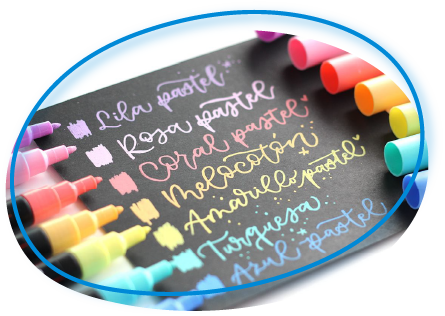 Lila pastel
Rosa pastel
Coral pastel
Melocotón
Amarillo pastel
Turquesa
Azul pastel